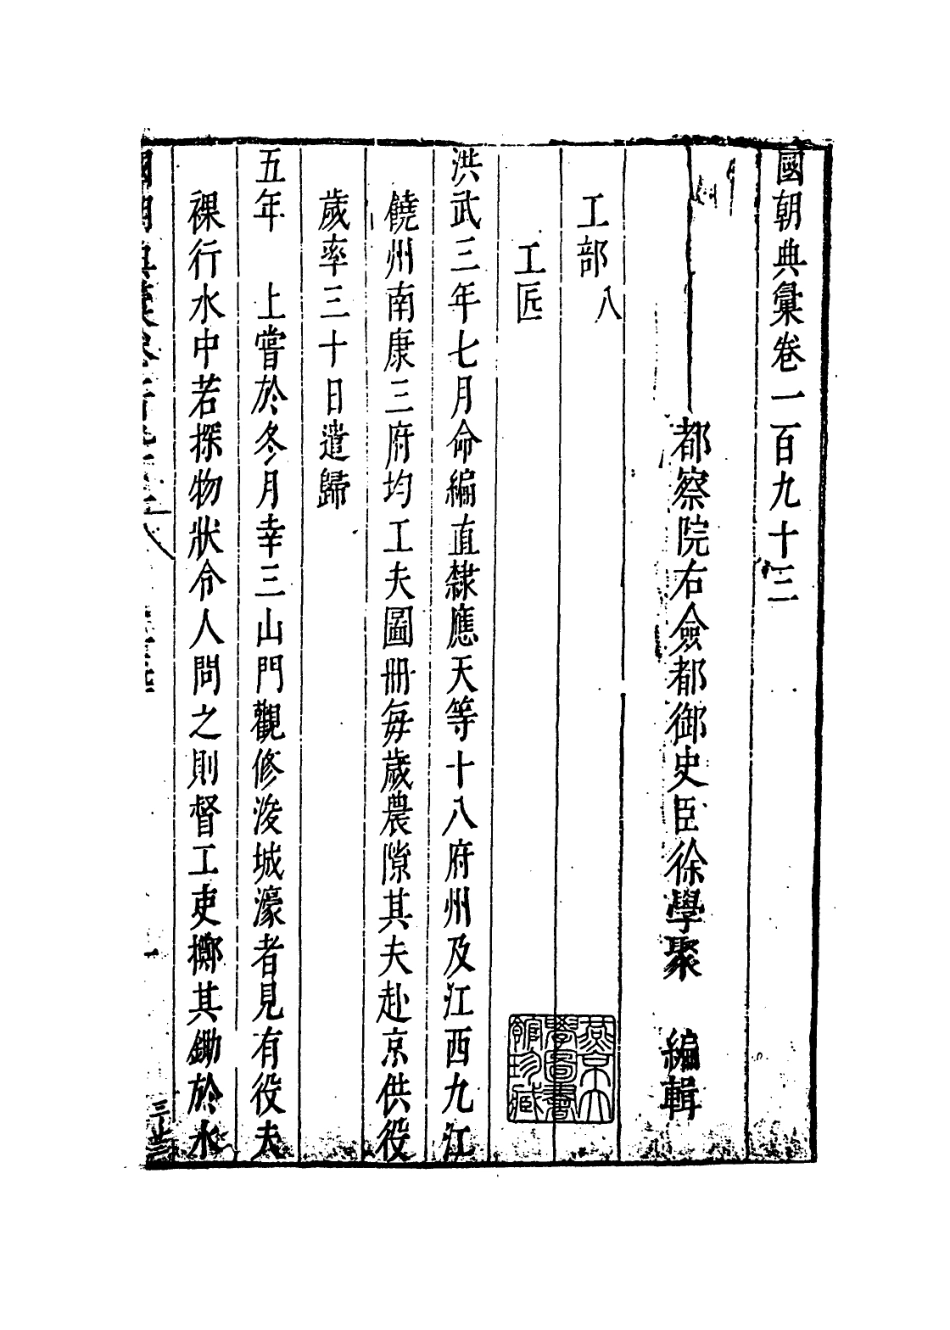 國朝典彙卷一百九十三
都察院右僉都御史臣徐學聚　編輯
工部八
工匠
洪武三年七月命編直隸應天等十八府州及江西九江
饒州南康三府均工夫圖冊每歲農隙其夫赴京供役
歲率三十日遣歸
五年　上嘗於冬月幸三山門觀修浚城濠者見有役夫
裸行水中若探物狀令人問之則督工吏擲其鋤於水
燕京大
學圖書
館珍藏